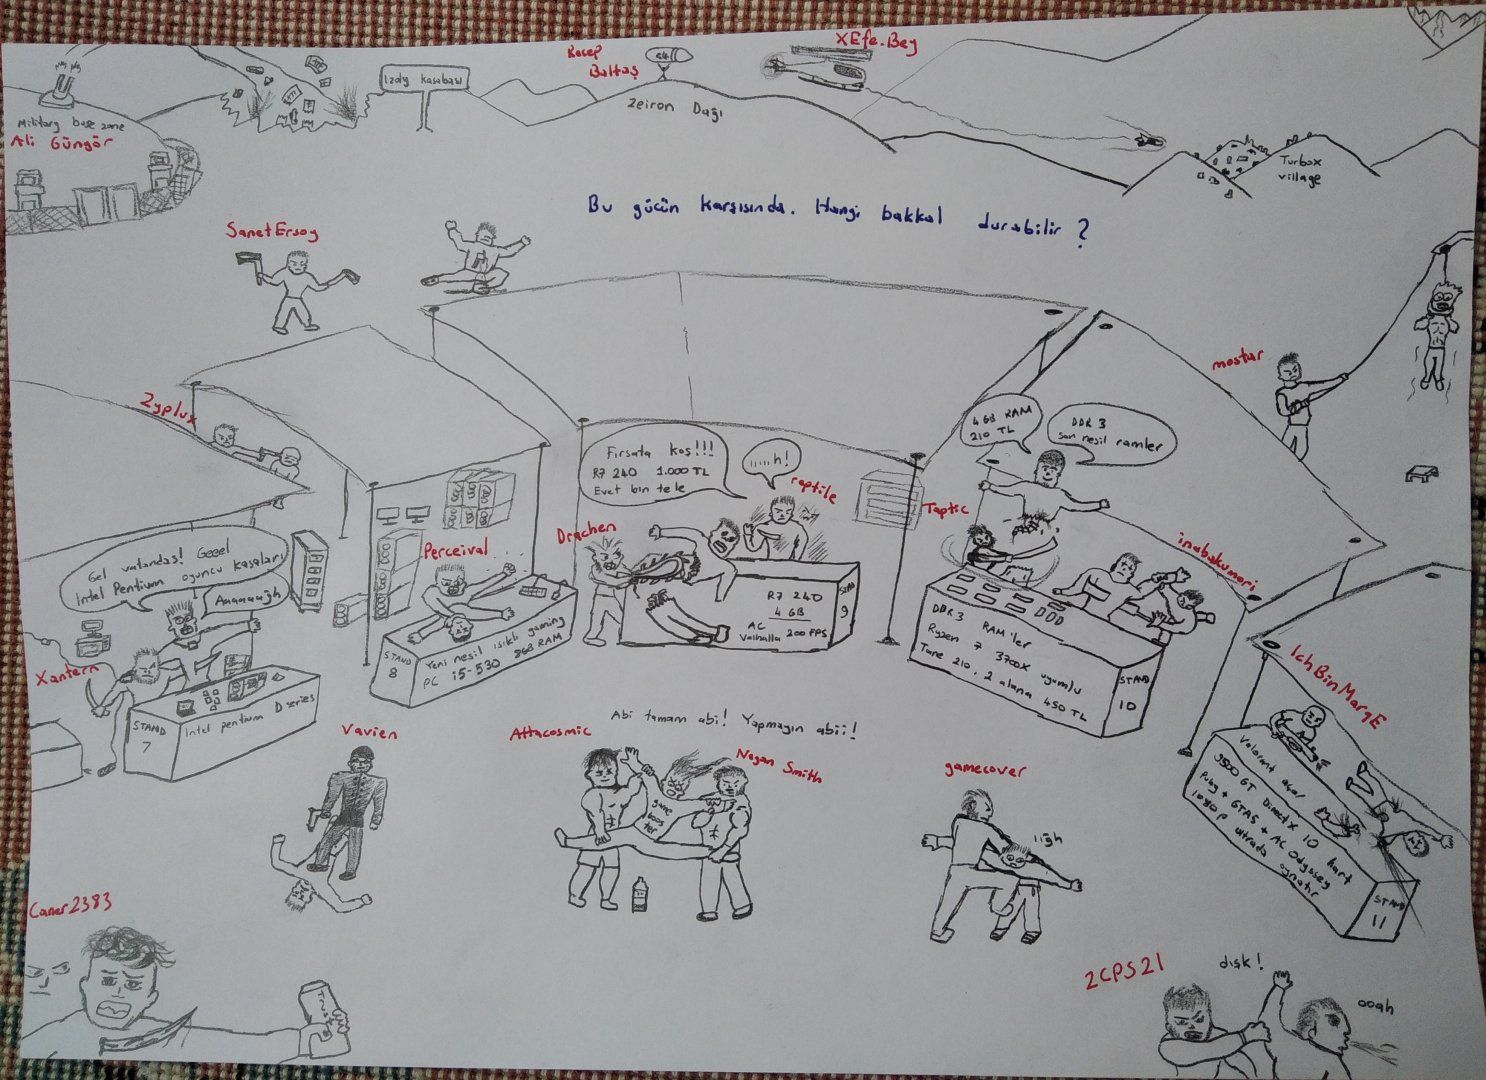 Military base zone
Ali Güngör
Izdiş kasabası
Recep
Baltaş
Zeiron Dağı
XEfe.Bey
Turbox
village
Bu gücün karşısında. Hangi bakkal durabilir?
SanetErsoy
mostar
Zyplux
4 GB RAM
210 TL
DDR 3
son nesil ramler
Fırsata koş!!!
R7 240 1.000 TL
Evet bin tele
......h!
reptile
Taptic
Drachen
Perceival
inabakumori
Gel vatandaş! Geeel
Intel Pentium oyuncu kasaları
Aaaaaağh
Xantern
STAND
7
Intel pentium D series
STAND
8
Yeni nesil ışıklı gaming
PC i5-530 8GB RAM
R7 240
4 GB
AC
Valhalla 200 FPS
STAND
9
DDR 3 RAM'ler
Ryzen 7 3700X uyumlu
Tane 210, 2 alana 450 TL
STAND
10
IchBinMargE
Valorant açar
9500 GT DirectX 10 kart
Pubg + GTA5 + AC Odyssey
1080p ultrada oynatır
STAND
11
Vavien
Attacosmic
Abi tamam abi! Yapmayın abii!
Negan Smith
game
boos
ter
gamecover
ıığh
Caner2383
2CPS21
dışk!
ooah